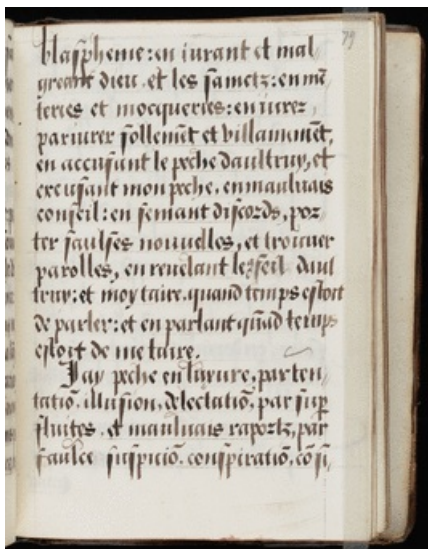 blaspheme: en iurant et mal
greant dieu. et les sainctz: en mē
teries et mocqueries: en iurez,
pariurer follemēt et villainmēt,
en accusant le peche daultruy, et
excusant mon peche, en maluais
conseil: en semant discords, por
ter faulses nouuelles, et trouuer
parolles, en reuelant le conseil daul
truy: et moy taire. quand temps estoit
de parler: et en parlant quād temps
estoit de me taire.
Jay peche en layure, par ten
tatiō, illusion, delectatiō, par sup
fluites, et mauluais raportz, par
faulce suspiciō. conspiratiō, cō si,
79